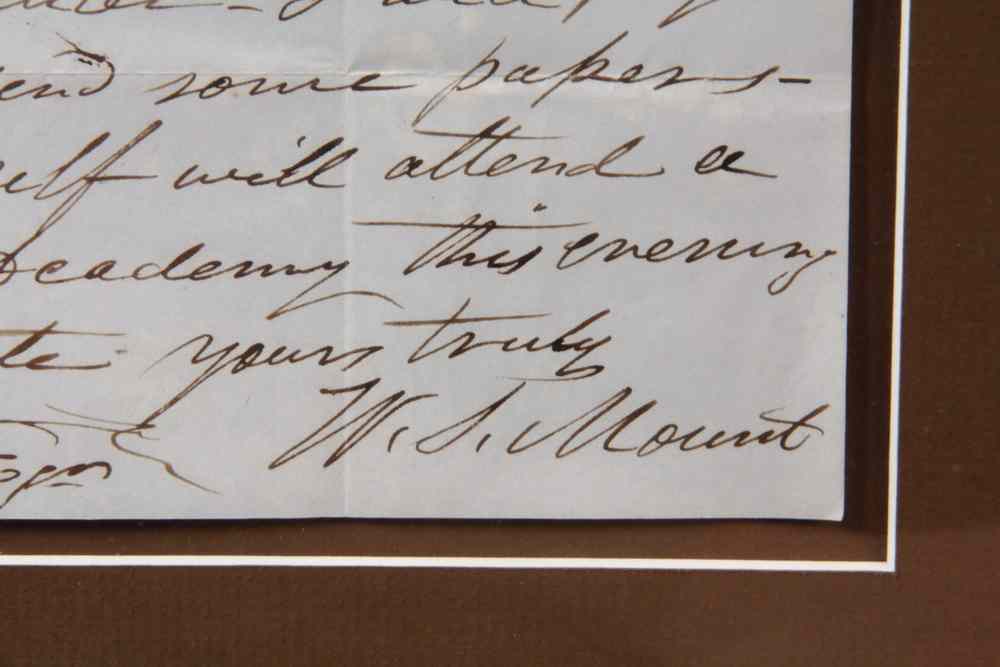 some papers-
will attend a
Academy this evening
yours truly
W. S. Mount